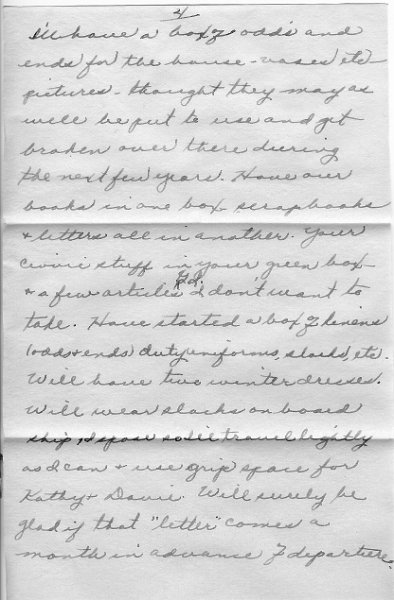 4
I'll have a box of odds and
ends for the house - vases, etc
pictures - thought they may as
well be put to use and get
broken over there during
the next few years. Have our
books in one box scrapbooks
& letters all in another. Your
civvie stuff in your green box
G.I.
& a few articles I don't want to
take. Have started a box of linens
(odds & ends) duty uniforms, slacks, etc.
Will have two winter dresses.
Will wear slacks on board
ship, I spose so I'll travel lightly
as I can & use grip space for
Kathy & Davie. Will surely be
glad if that "letter" comes a
month in advance of departure.